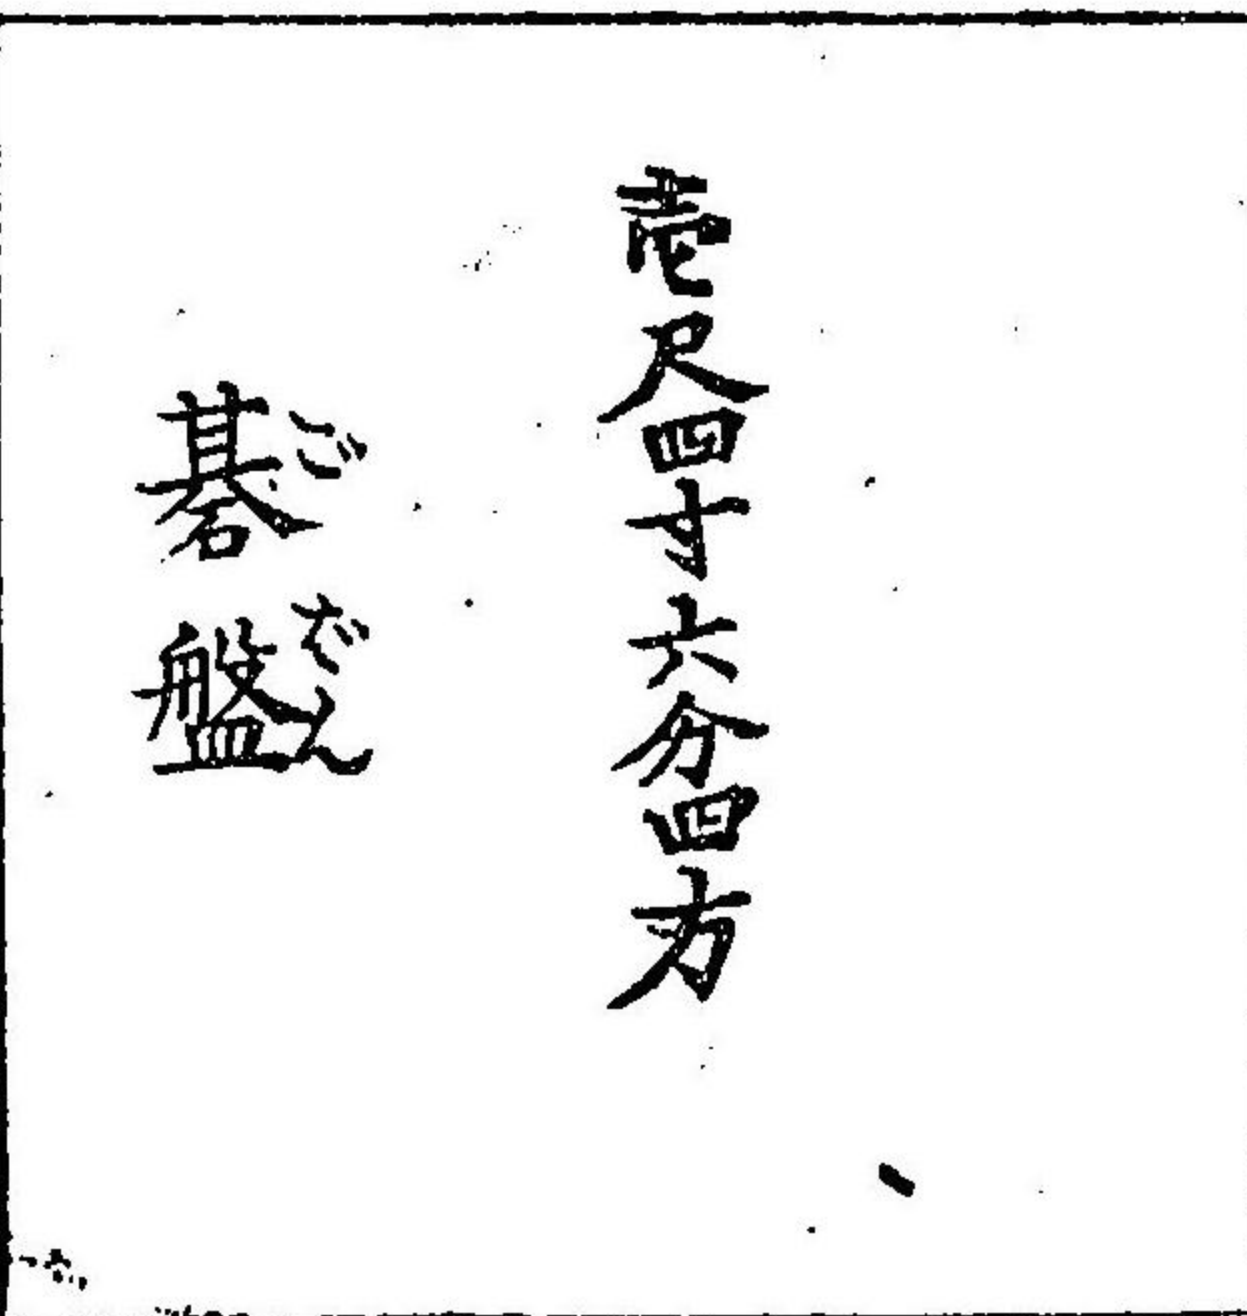 壱尺四寸六分四方
碁盤
ごばん